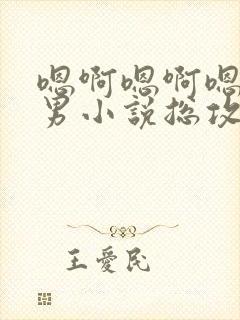 嗯啊嗯啊嗯
男小説总攻
王愛民